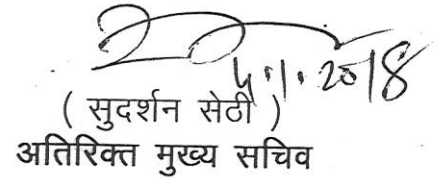 4.1.2018
( सुदर्शन सेठी )
अतिरिक्त मुख्य सचिव